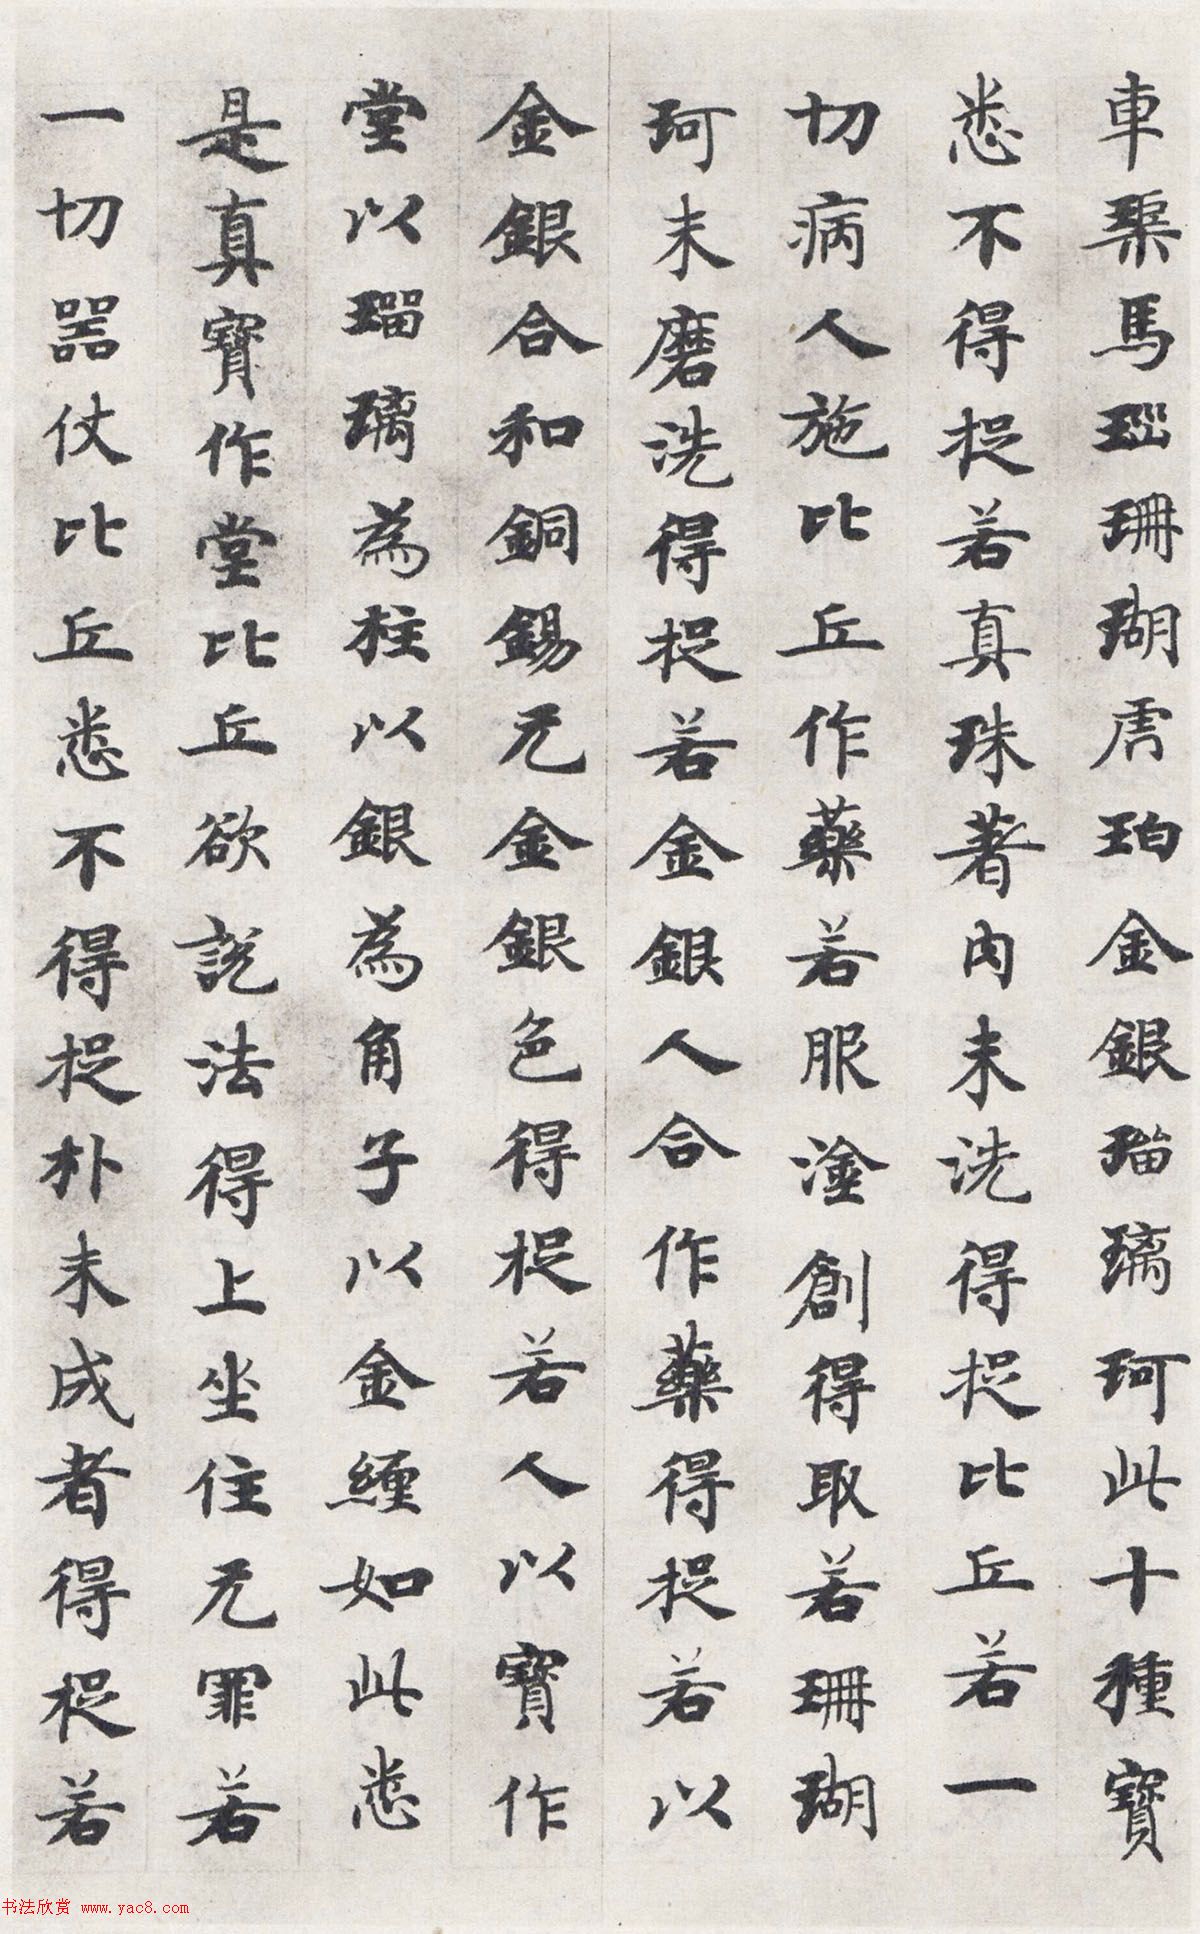 車璖馬瑙珊瑚虎珀金銀瑠璃珂此十種寶
悉不得捉若真珠著内未洗得捉比丘若一
切病人施比丘作藥若服塗創得取若珊瑚
珂末磨洗得捉若金銀人合作藥得捉若以
金銀合和銅錫无金銀色得捉若人以寶作
堂以瑠璃為柱以銀為角子以金纏如此悉
是真寶作堂比丘欲說法得上坐住无罪若
一切器仗比丘悉不得捉朴未成者得捉若
书法欣赏 www.yac8.com